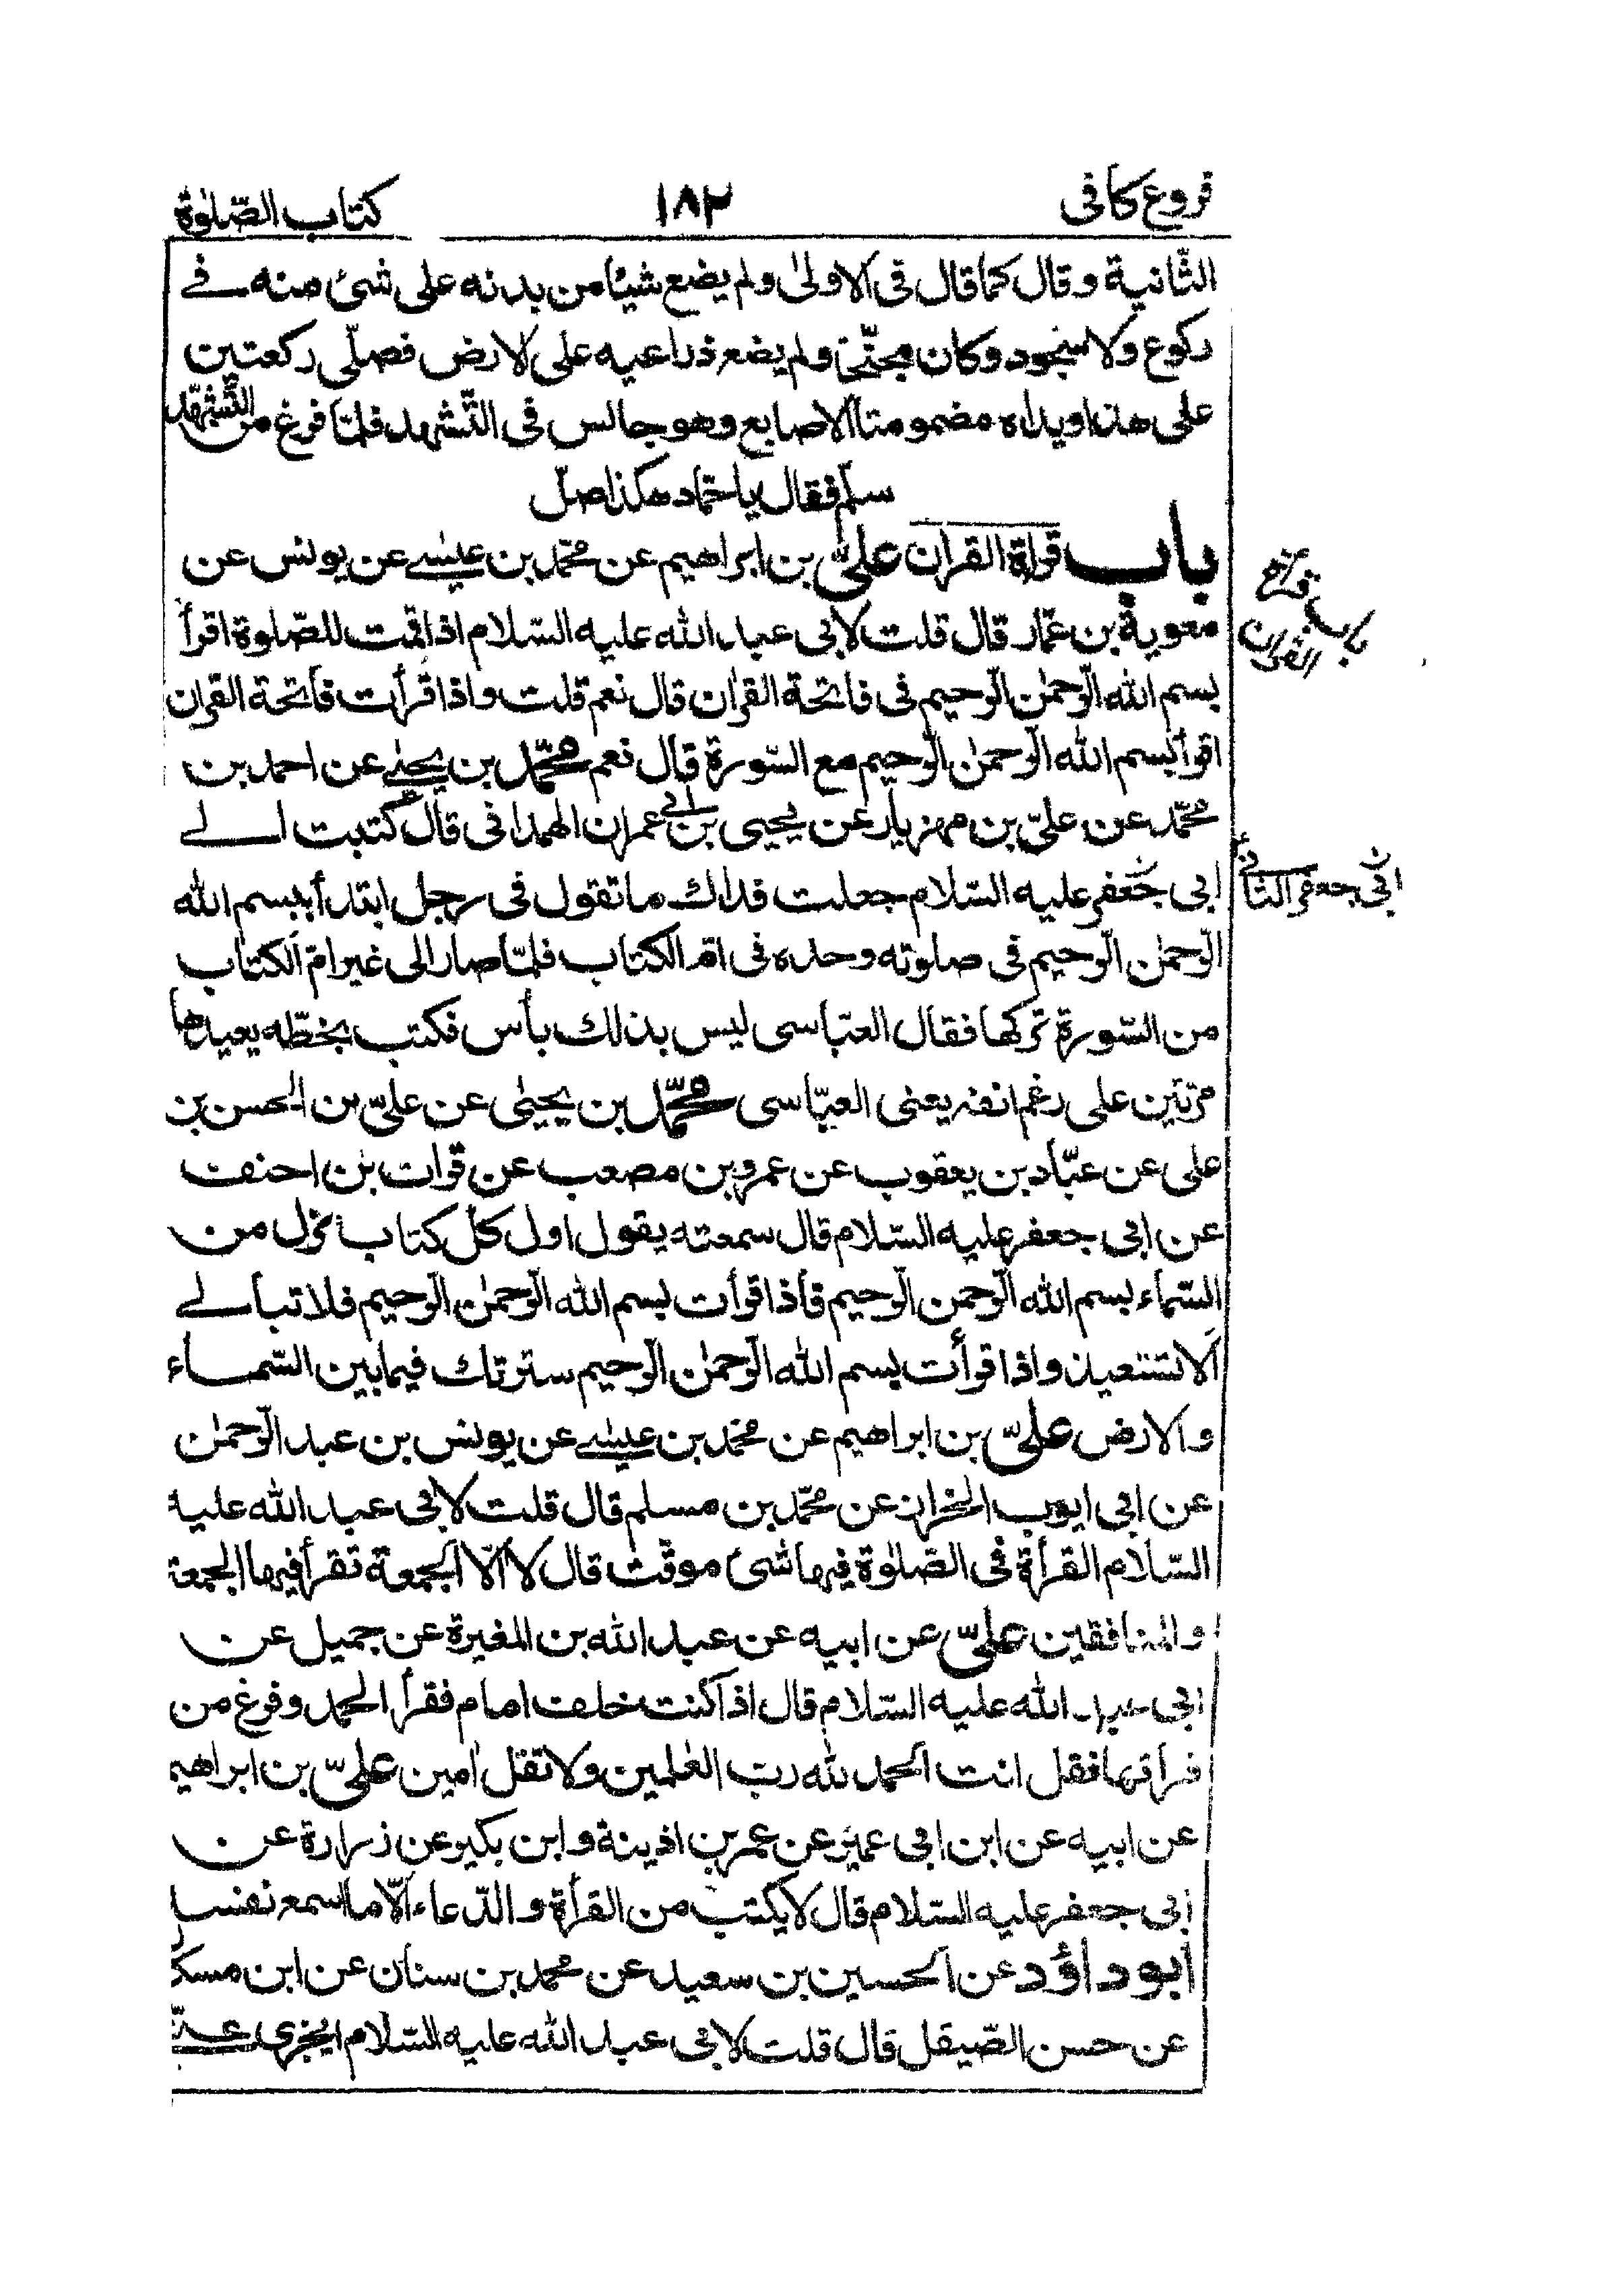 فروع كافى
١٨٢
كتاب الصّلوٰة
الثّانية وقال كما قال فى الاولىٰ ولم يضع شيئا من بدنه على شئ منه فے
ركوع ولا سجود وكان مجنّحا ولم يضع ذراعيه على الارض فصلّى ركعتين
على هذا ويداه مضمومتا الاصابع وهو جالس فى التّشهد فلمّا فرغ من التّشهّد
سلّم فقال يا حمّاد هكذا صلّ
باب قراءة القران علىّ بن ابراهيم عن محمّد بن عيسے عن يونس عن
معوية بن عمّار قال قلت لابى عبد الله عليه السّلام اذا قمت للصّلوة اقرأ
بسم الله الرّحمٰن الرّحيم فى فاتحة القرٰان قال نعم قلت واذا قرأت فاتحة القران
اقرأ بسم الله الرّحمٰن الرّحيم مع السّورة قال نعم محمّد بن يحيٰى عن احمد بن
محمّد عن علىّ بن مهزيار عن يحيى بن ابى عمران الهمدانى قال كتبت الے
ابى جعفر عليه السّلام جعلت فداك ما تقول فى رجل ابتدأ ببسم الله
الرّحمٰن الرّحيم فى صلوته وحده فى امّ الكتاب فلمّا صار الى غير امّ الكتاب
من السّورة تركها فقال العبّاسى ليس بذلك بأس فكتب بخطّه يعيدها
مرّتين على رغم انفه يعنى العبّاسى محمّد بن يحيٰى عن علىّ بن الحسن بن
على عن عبّاد بن يعقوب عن عمرو بن مصعب عن فرات بن احنف
عن ابى جعفر عليه السّلام قال سمعته يقول اول كلّ كتاب نزل من
السّماء بسم الله الرّحمن الرّحيم فأذا قرأت بسم الله الرّحمٰن الرّحيم فلا تبالے
الا تستعيذ واذا قرأت بسم الله الرّحمٰن الرّحيم سترتك فيما بين السّماء
والارض علىّ بن ابراهيم عن محمّد بن عيسے عن يونس بن عبد الرّحمٰن
عن ابى ايوب الخزاز عن محمّد بن مسلم قال قلت لابى عبد الله عليه
السّلام القرأة فى الصّلوٰة فيها شئ موقّت قال لا الّا الجمعة تقرأ فيها الجمعة
والمنافقين علىّ عن ابيه عن عبد الله بن المغيرة عن جميل عن
ابى عبد الله عليه السّلام قال اذا كنت خلف امام فقرأ الحمد وفرغ من
قرأتها فقل انت الحمد لله ربّ العٰلمين ولا تقل اٰمين علىّ بن ابراهيم
عن ابيه عن ابن ابى عمير عن عمر بن اذينة وابن بكير عن زرارة عن
ابى جعفر عليه السّلام قال لا يكتب من القرأة والدّعاء الّا ما اسمع نفسه
ابو داؤد عن الحسين بن سعيد عن محمد بن سنان عن ابن مسكا
عن حسن الصّيقل قال قلت لابى عبد الله عليه السّلام ايجزى عنّے
باب قراءة
القران
ابى جعفر الثانى